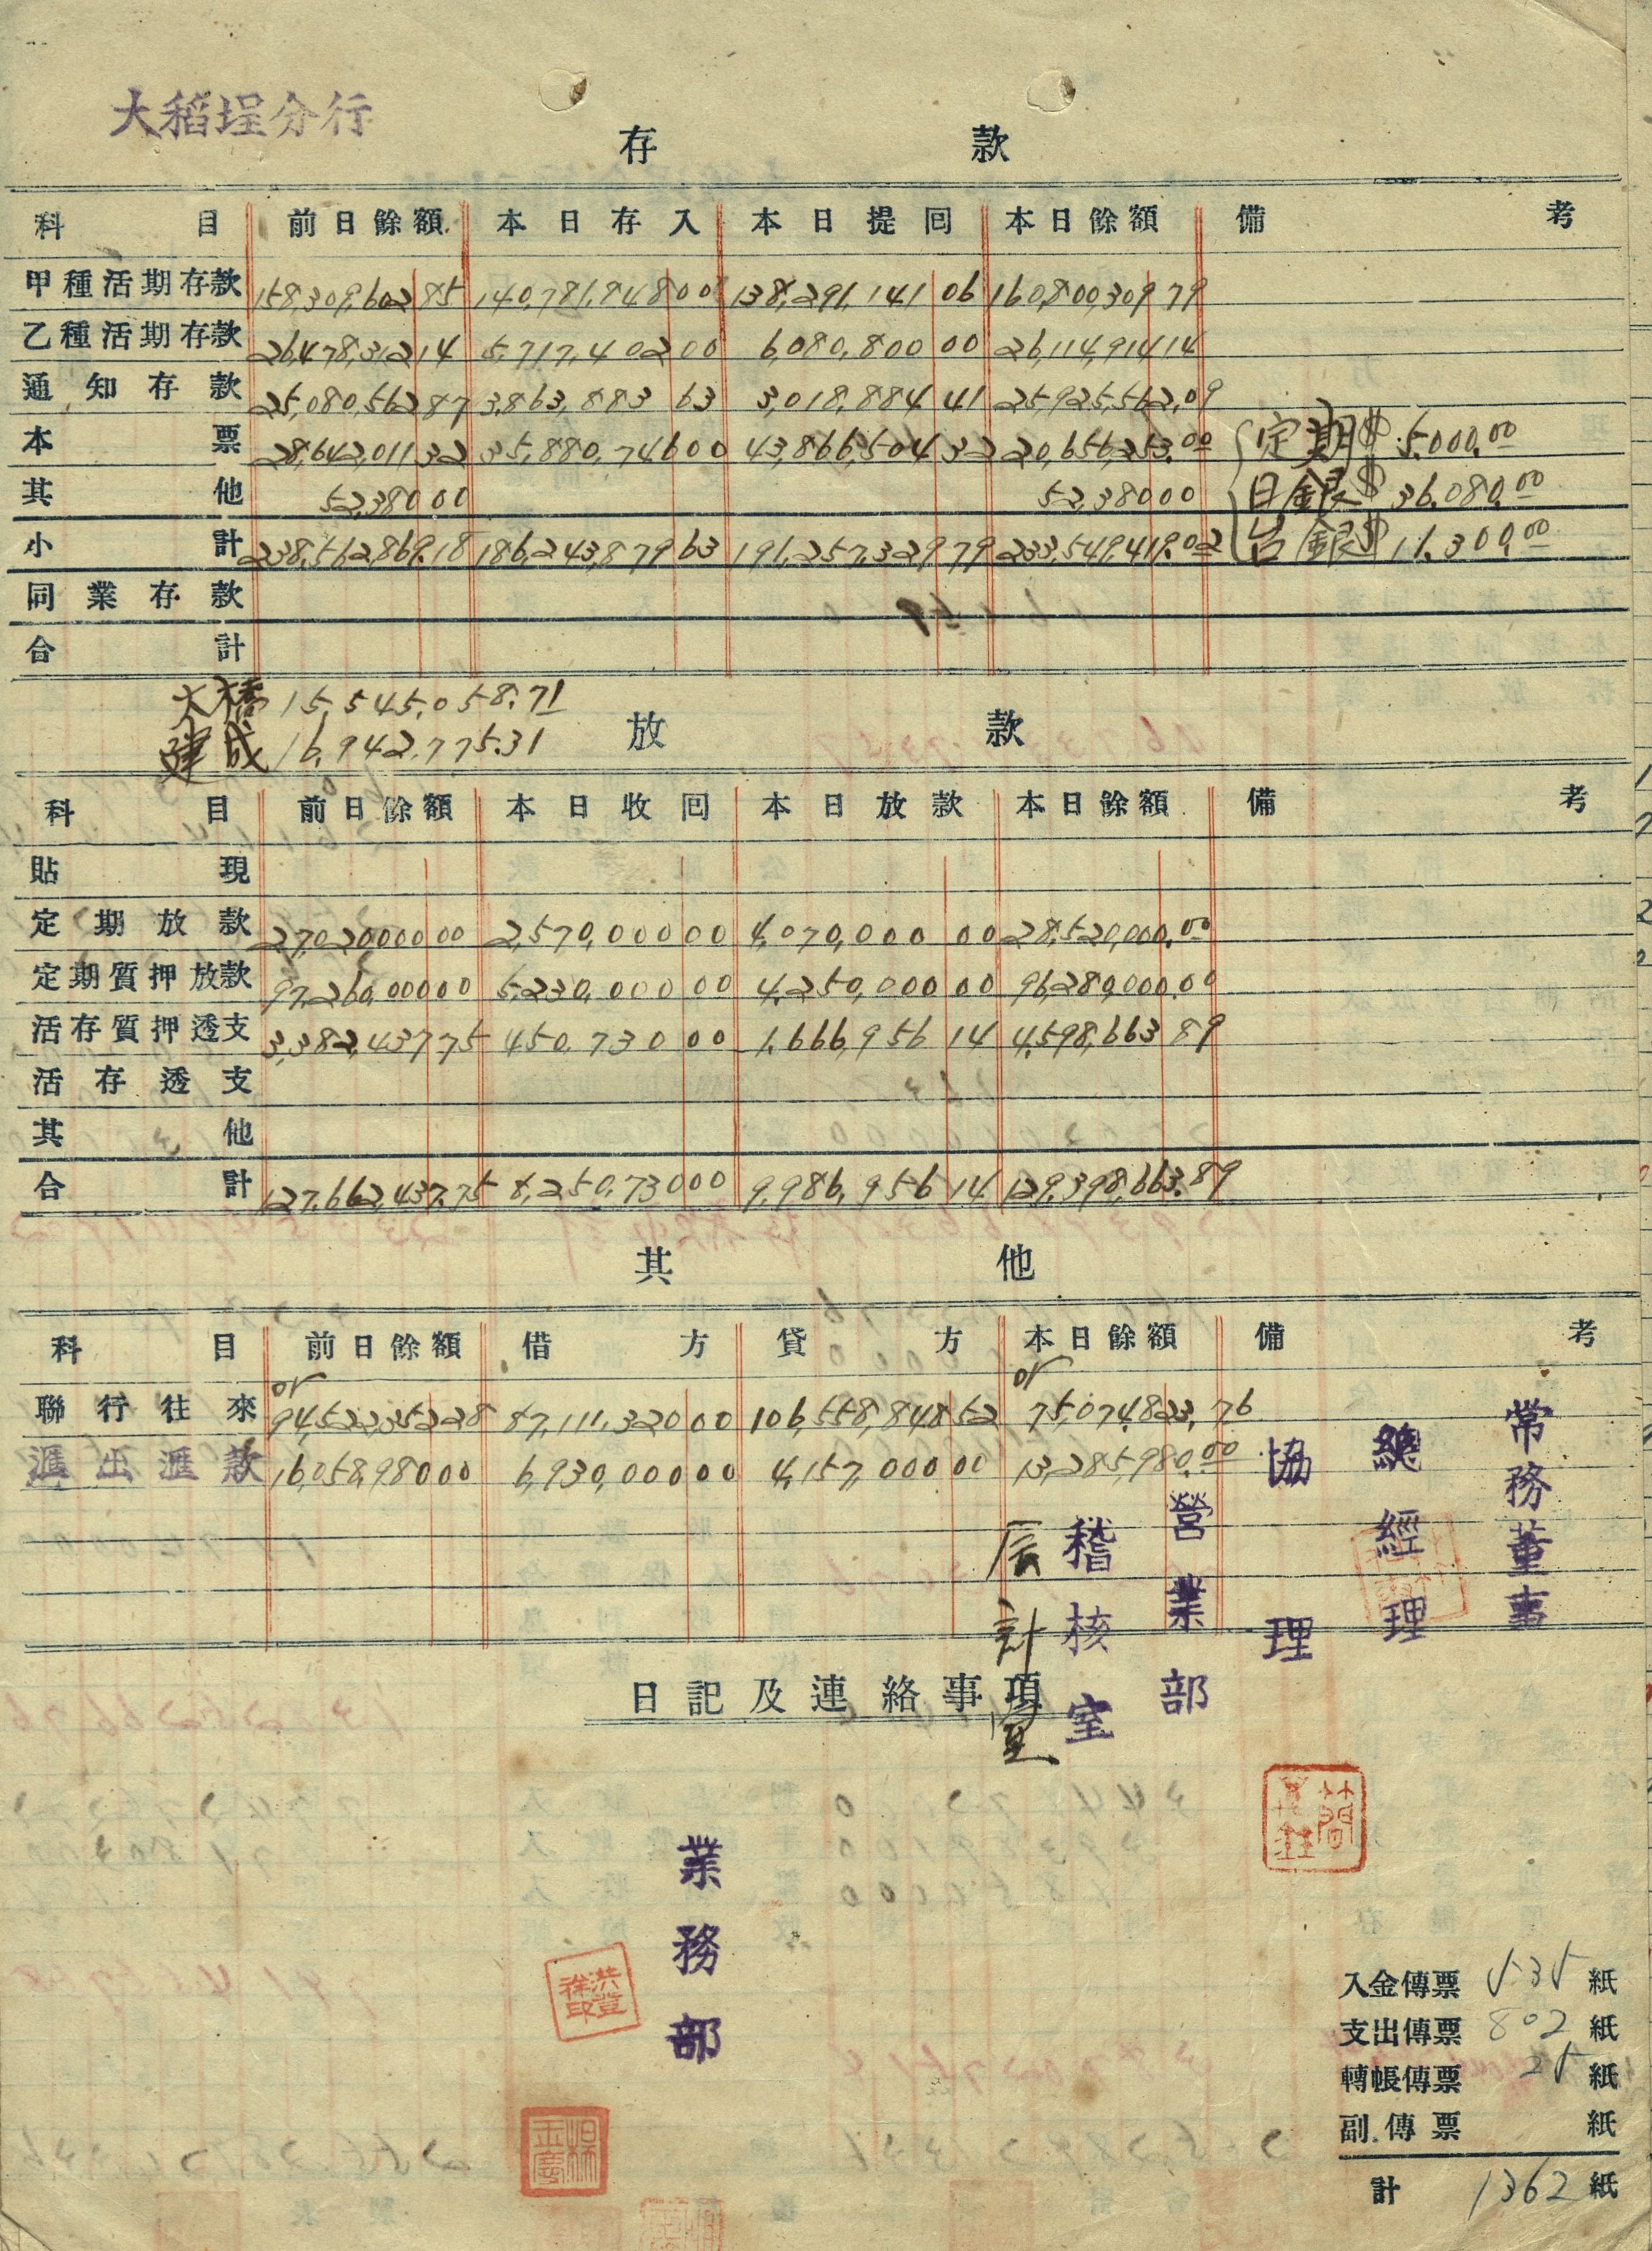 大稻埕分行
存 款
科目 前日餘額 本日存入 本日提回 本日餘額 備考
甲種活期存款 158,309,602.85 140,781,848.00 138,291,141.06 160,800,309.79
乙種活期存款 26,478,312.14 5,717,402.00 6,080,800.00 26,114,914.14
通知存款 25,080,562.87 3,863,883.63 3,018,884.41 25,925,562.09
本票 28,642,011.32 35,880,746.00 43,866,504.32 20,656,253.00 定期$5,000.00
其他 52,380.00 52,380.00 日銀$36,080.00
小計 238,562,869.18 186,243,879.63 191,257,329.79 233,549,419.02 台銀$11,300.00
同業存款
合計
大橋 15,545,058.71
建成 16,942,775.31
放 款
科目 前日餘額 本日收回 本日放款 本日餘額 備考
貼現
定期放款 27,020,000.00 2,570,000.00 4,070,000.00 28,520,000.00
定期質押放款 97,260,000.00 5,230,000.00 4,250,000.00 96,280,000.00
活存質押透支 3,382,437.75 450,730.00 1,666,956.14 4,598,663.89
活存透支
其他
合計 127,662,437.75 8,250,730.00 9,986,956.14 129,398,663.89
其 他
科目 前日餘額 借方 貸方 本日餘額 備考
聯行往來 94,522,352.28 87,111,320.00 106,558,848.52 75,074,823.76
滙出滙款 16,058,980.00 6,930,000.00 4,157,000.00 13,285,980.00
常務董事
總經理
協理
營業部
稽核室
日記及連絡事項
業務部
入金傳票 535 紙
支出傳票 802 紙
轉帳傳票 25 紙
副傳票 紙
計 1362 紙